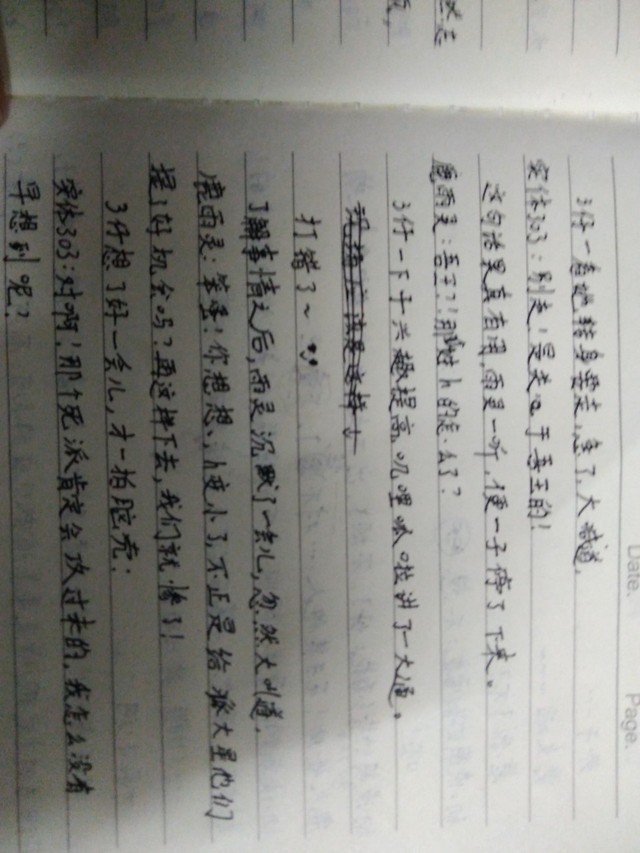 Date.
Page.
3仔一看她转身要走,急了,大喊道,
实体303:别走!是关于吾王的!
这句话果真有用,雨灵一听,便一子停了下来。
鹿雨灵:吾王?!那姓h的怎么了?
3仔一下子兴趣提高,叽哩呱啦讲了一大通。
打错了~
了解事情之后,雨灵沉默了一会儿,忽然大叫道,
鹿雨灵:笨蛋!你想想,h变小了,不正是给猴大星他们
提了好机会吗?再这样下去,我们就惨了!
3仔想了好一会儿,才一拍脑壳:
实体303:对啊!那个死派肯定会攻过来的,我怎么没有
早想到呢?